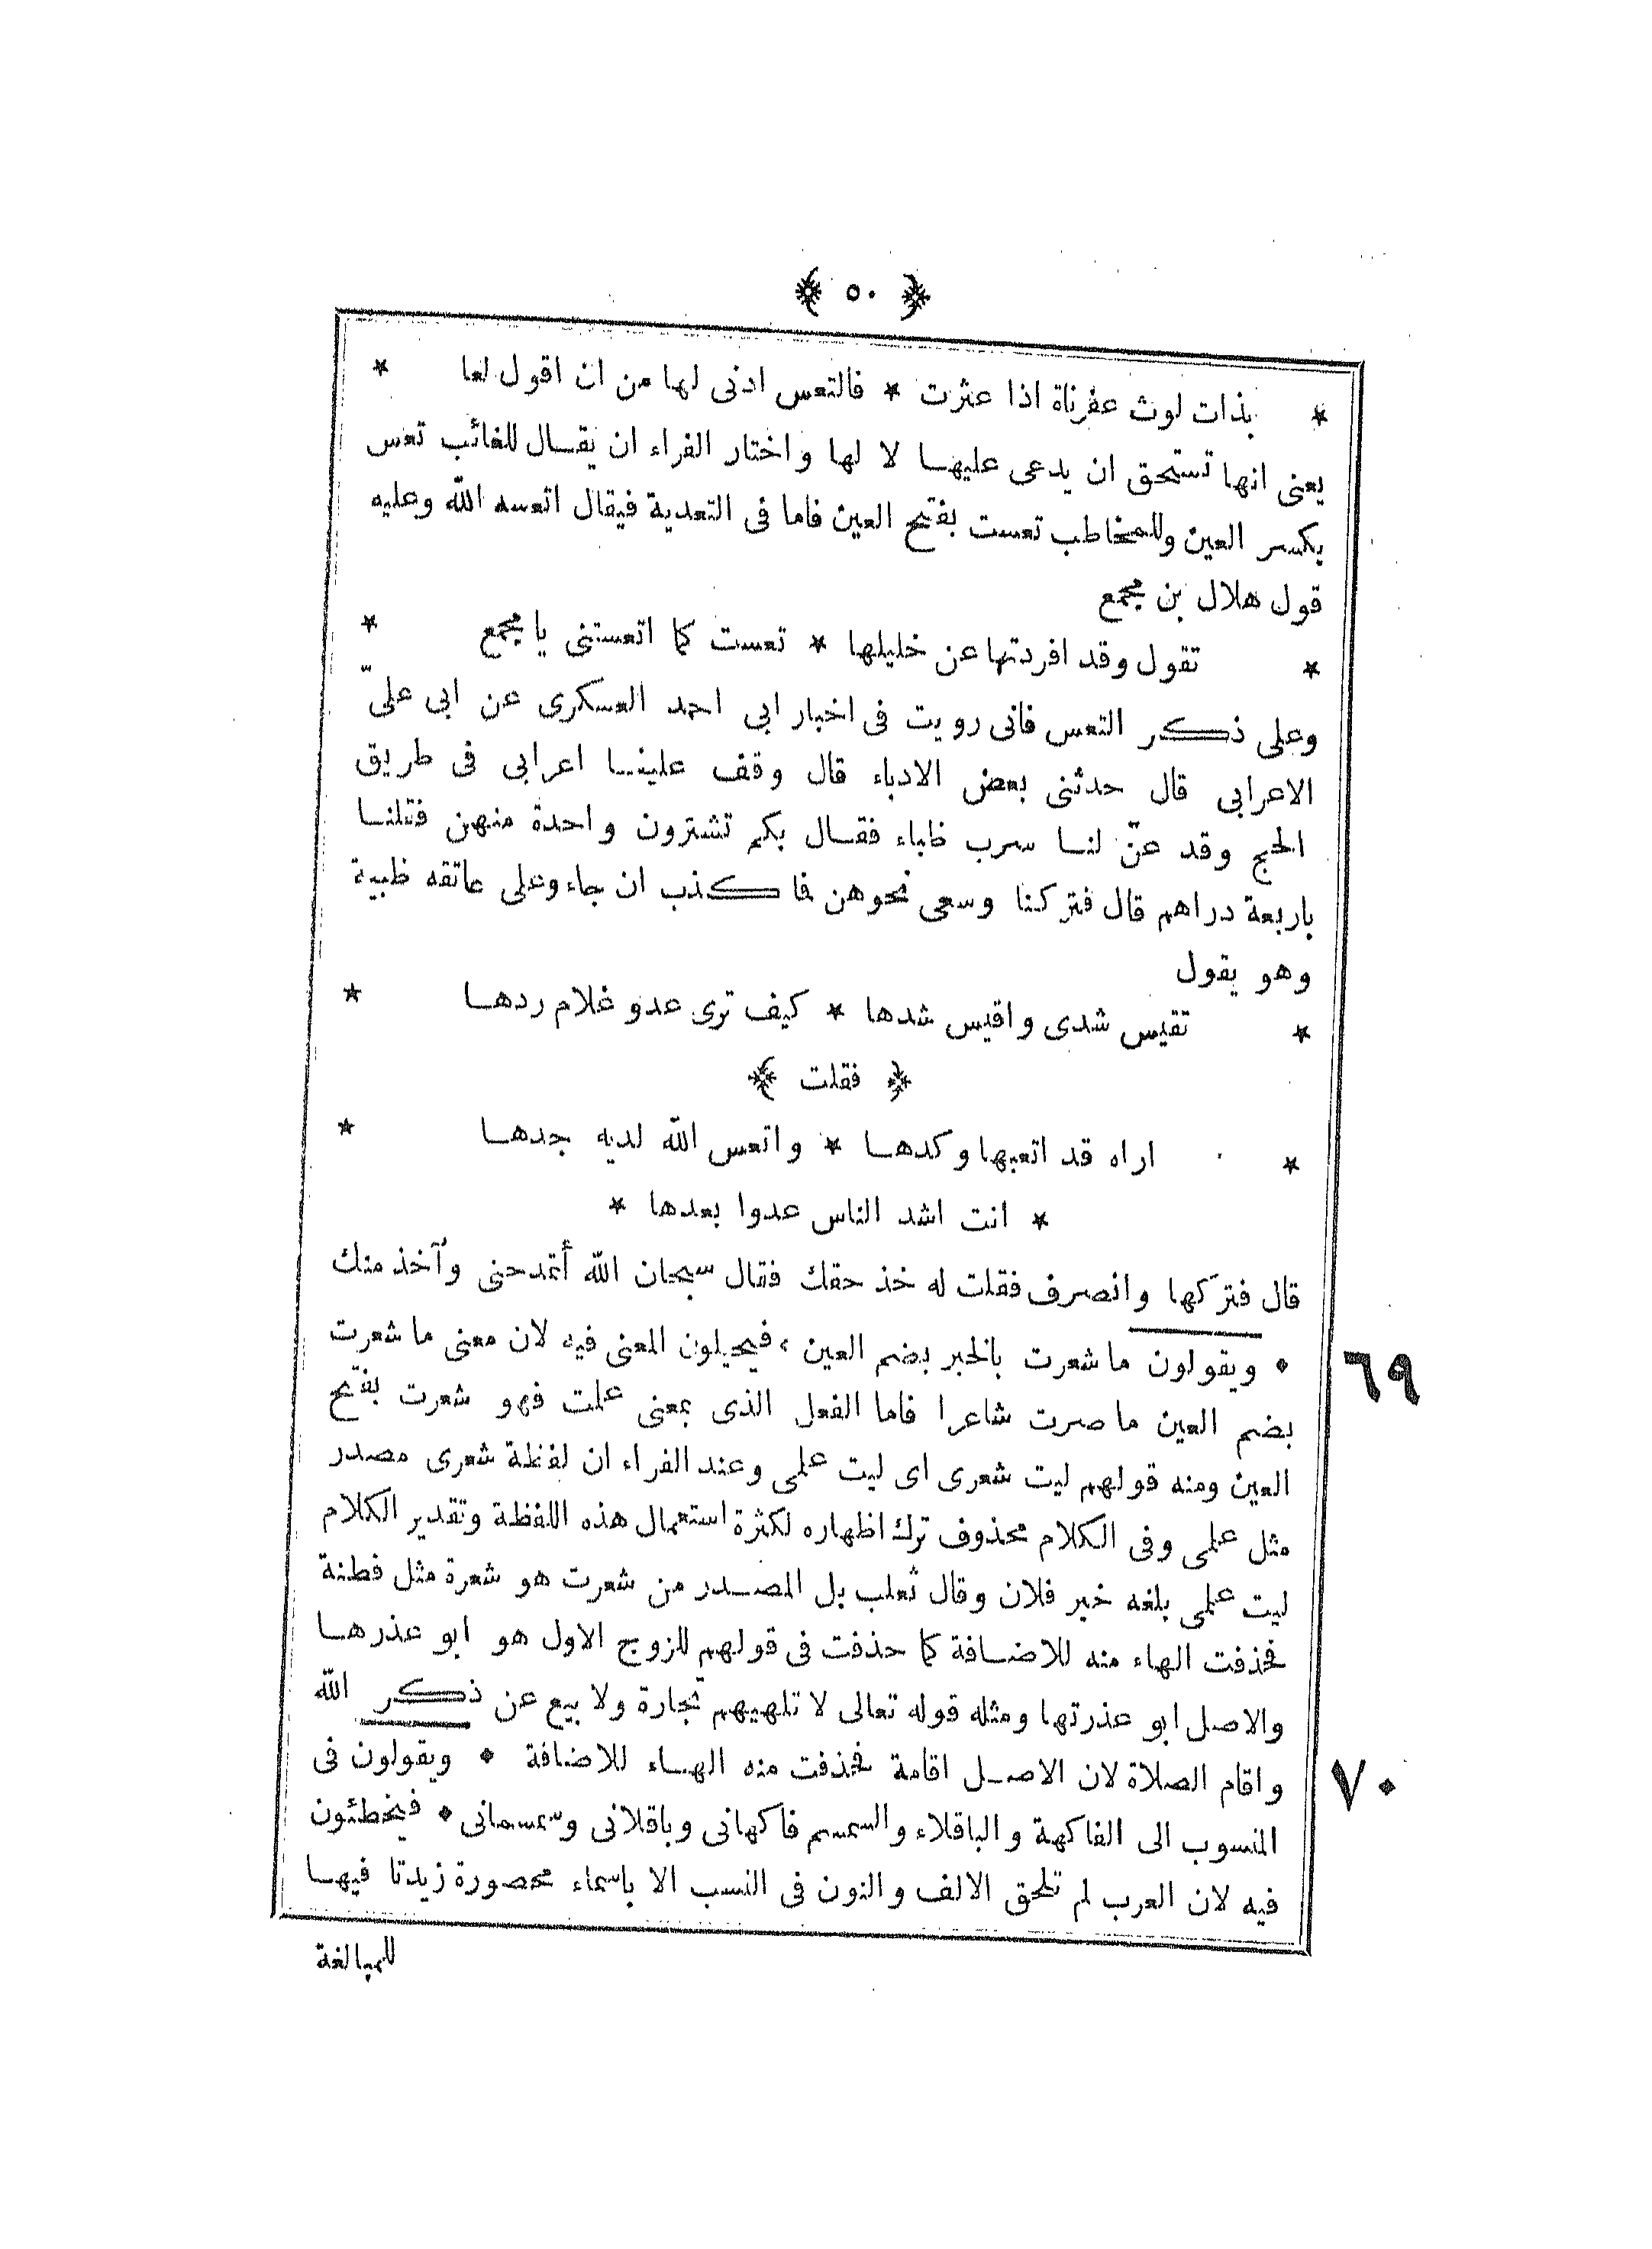 ﴿ ٥٠ ﴾
* بذات لوث عفرناة اذا عثرت * فالتعس ادنى لها من ان اقول لعا *
يعنى انها تستحق ان يدعى عليها لا لها واختار الفراء ان يقال للغائب تعس
بكسر العين وللمخاطب تعست بفتح العين فاما فى التعدية فيقال اتعسه الله وعليه
قول هلال بن مجمع
* تقول وقد افردتها عن خليلها * تعست كما اتعستنى يا مجمع *
وعلى ذكر التعس فانى رويت فى اخبار ابى احمد العسكرى عن ابى علىّ
الاعرابى قال حدثنى بعض الادباء قال وقف علينا اعرابى فى طريق
الحج وقد عنّ لنا سرب ظباء فقال بكم تشترون واحدة منهن فقلنا
باربعة دراهم قال فتركنا وسعى نحوهن فما كذب ان جاء وعلى عاتقه ظبية
وهو يقول
* تقيس شدى واقيس شدها * كيف ترى عدو غلام ردها *
﴿ فقلت ﴾
* اراه قد اتعبها وكدها * واتعس الله لديه جدها *
* انت اشد الناس عدوا بعدها *
قال فتركها وانصرف فقلت له خذ حقك فقال سبحان الله أتمدحنى وآخذ منك
٦٩ • ويقولون ما شعرت بالخبر بضم العين • فيحيلون المعنى فيه لان معنى ما شعرت
بضم العين ما صرت شاعرا فاما الفعل الذى بمعنى علمت فهو شعرت بفتح
العين ومنه قولهم ليت شعرى اى ليت علمى وعند الفراء ان لفظة شعرى مصدر
مثل علمى وفى الكلام محذوف ترك اظهاره لكثرة استعمال هذه اللفظة وتقدير الكلام
ليت علمى بلغه خبر فلان وقال ثعلب بل المصدر من شعرت هو شعرة مثل فطنة
فحذفت الهاء منه للاضافة كما حذفت فى قولهم للزوج الاول هو ابو عذرها
والاصل ابو عذرتها ومثله قوله تعالى لا تلهيهم تجارة ولا بيع عن ذكر الله
٧٠ واقام الصلاة لان الاصل اقامة فحذفت منه الهاء للاضافة • ويقولون فى
المنسوب الى الفاكهة والباقلاء والسمسم فاكهانى وباقلانى وسمسمانى • فيخطئون
فيه لان العرب لم تلحق الالف والنون فى النسب الا باسماء محصورة زيدتا فيها
للمبالغة